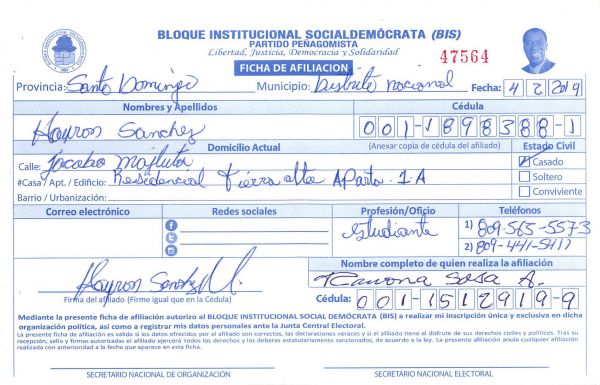 BLOQUE INSTITUCIONAL SOCIALDEMÓCRATA (BIS)
PARTIDO PEÑAGOMISTA
Libertad, Justicia, Democracia y Solidaridad
47564
FICHA DE AFILIACION
Provincia: Santo Domingo Municipio: Distrito nacional Fecha: 4/2/2019
Nombres y Apellidos Cédula
Hayron Sanchez 001-1898388-1
Domicilio Actual (Anexar copia de cédula del afiliado) Estado Civil
Calle: Jacobo Majluta Casado
#Casa / Apt. / Edificio: Residencial Tierra alta Aparto. 1-A Soltero
Barrio / Urbanización: Conviviente
Correo electrónico Redes sociales Profesión/Oficio Teléfonos
Estudiante 1) 809-565-5573
2) 809-441-5417
Hayron Sanchez M.
Nombre completo de quien realiza la afiliación
Ramona Sosa A.
Firma del afiliado (Firme igual que en la Cédula) Cédula: 001-1512919-9
Mediante la presente ficha de afiliación autorizo al BLOQUE INSTITUCIONAL SOCIAL DEMÓCRATA (BIS) a realizar mi inscripción única y exclusiva en dicha
organización política, así como a registrar mis datos personales ante la Junta Central Electoral.
La presente ficha de afiliación es válida si los datos ofrecidos por el afiliado son correctos, las declaraciones veraces y si el afiliado tiene el disfrute de sus derechos civiles y políticos. Tras su
recepción, sello y firmas autorizadas el afiliado ejercerá todos los derechos y los deberes estatutariamente sancionados, de acuerdo a la ley. La presente afiliación anula cualquier afiliación
realizada con anterioridad a la fecha que aparece en esta ficha.
SECRETARIO NACIONAL DE ORGANIZACIÓN SECRETARIO NACIONAL ELECTORAL